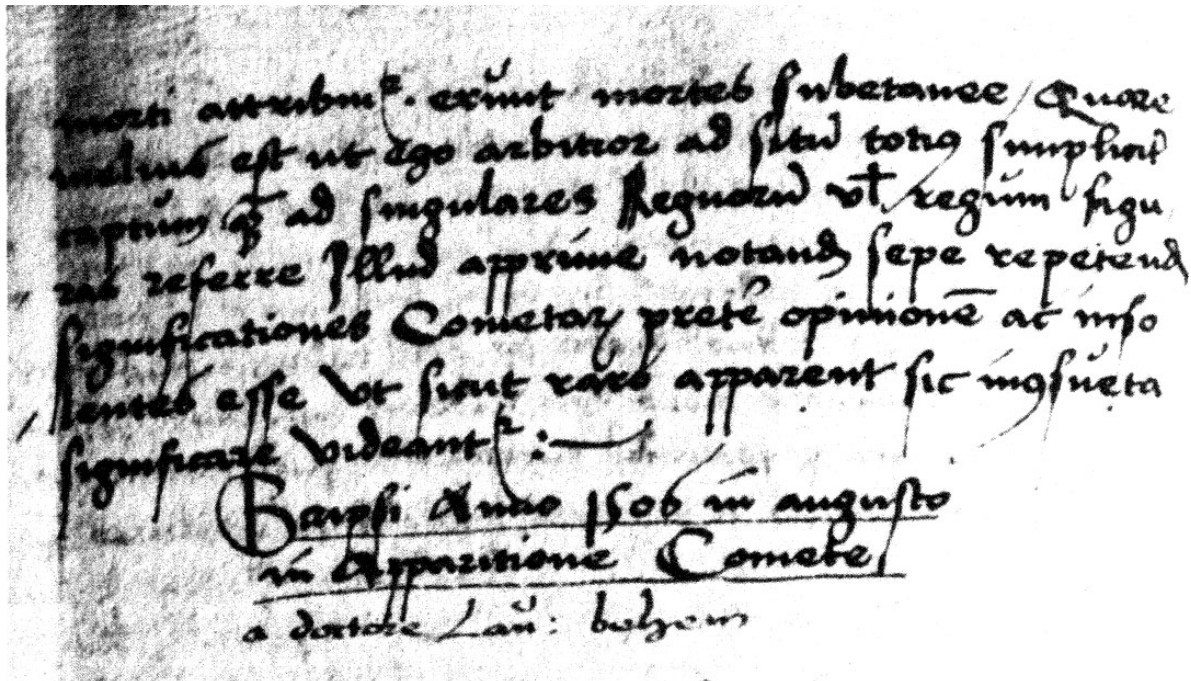 morti attribuit᷑. erūnt mortes subetanee / Quare
melius est ut ego arbitror ad sitū totiꝰ simplicit᷑
captum ꝙ̄ ad singulares Regnorū vl̄ regum figu
ras referre Illud apprime notandꝫ sepe repetendꝫ
significationes Cometaꝝ pret᷑ opinionē ac inso
lentes esse Vt sicut raro apparent sic inꝯsueta
significare videant᷑ :—
Scripsi Anno 1506 in augusto
in Apparitione Comete
a doctore Lau: behem